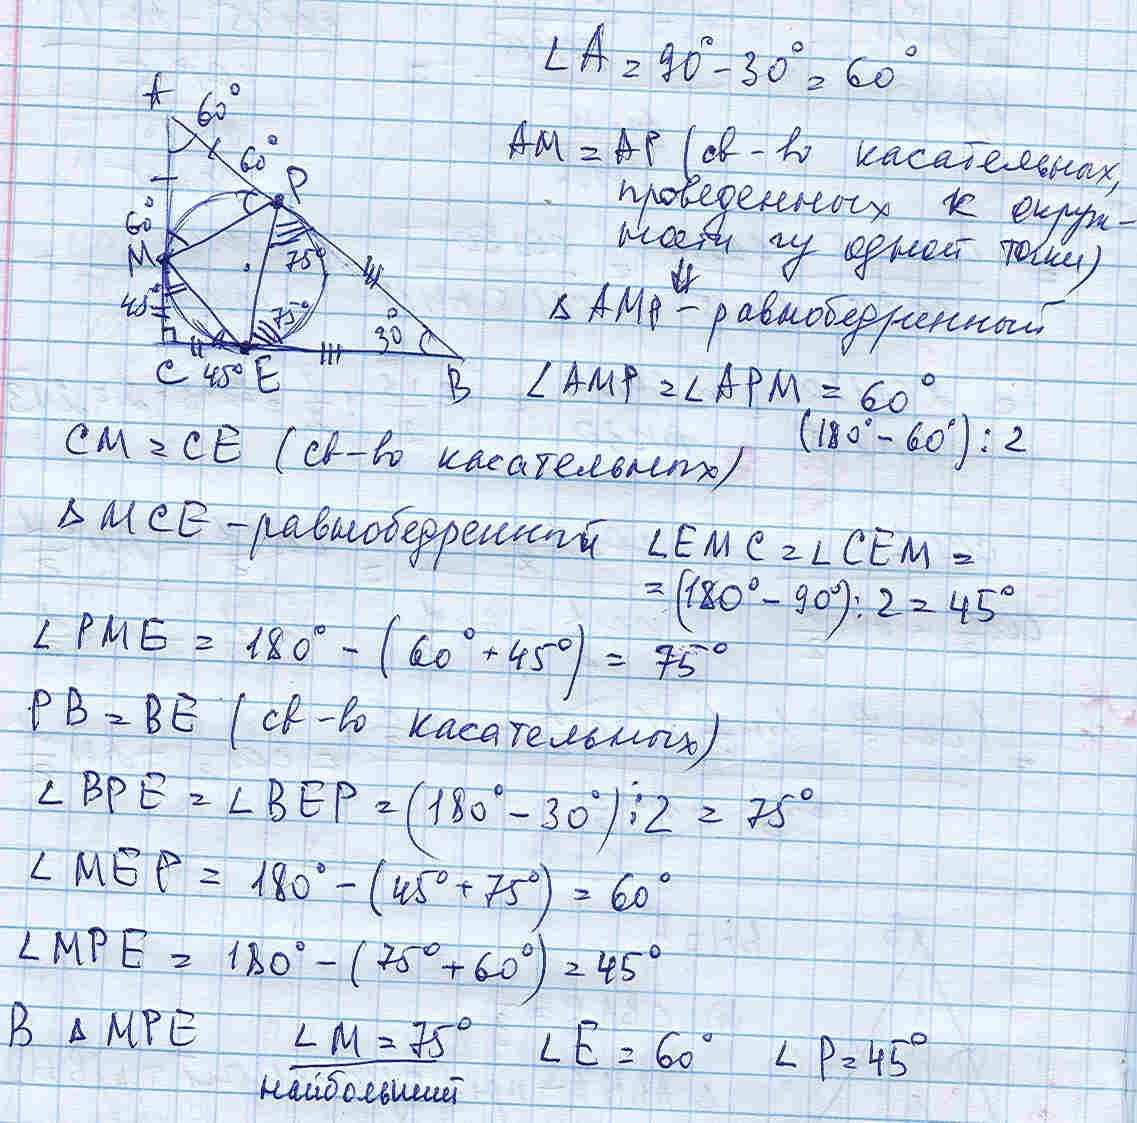 ∠A = 90° - 30° = 60°
A
60°
60°
P
60°
M
75°
45°
75°
30°
C
45°
E
B
AM = AP (св-во касательных,
проведенных к окруж-
ности из одной точки)
⇓
△ AMP - равнобедренный
∠AMP = ∠APM = 60°
(180° - 60°) : 2
CM = CE (св-во касательных)
△ MCE - равнобедренный ∠EMC = ∠CEM =
= (180° - 90°) : 2 = 45°
∠PME = 180° - (60° + 45°) = 75°
PB = BE (св-во касательных)
∠BPE = ∠BEP = (180° - 30°) : 2 = 75°
∠MEP = 180° - (45° + 75°) = 60°
∠MPE = 180° - (75° + 60°) = 45°
В △ MPE ∠M = 75° ∠E = 60° ∠P = 45°
наибольший